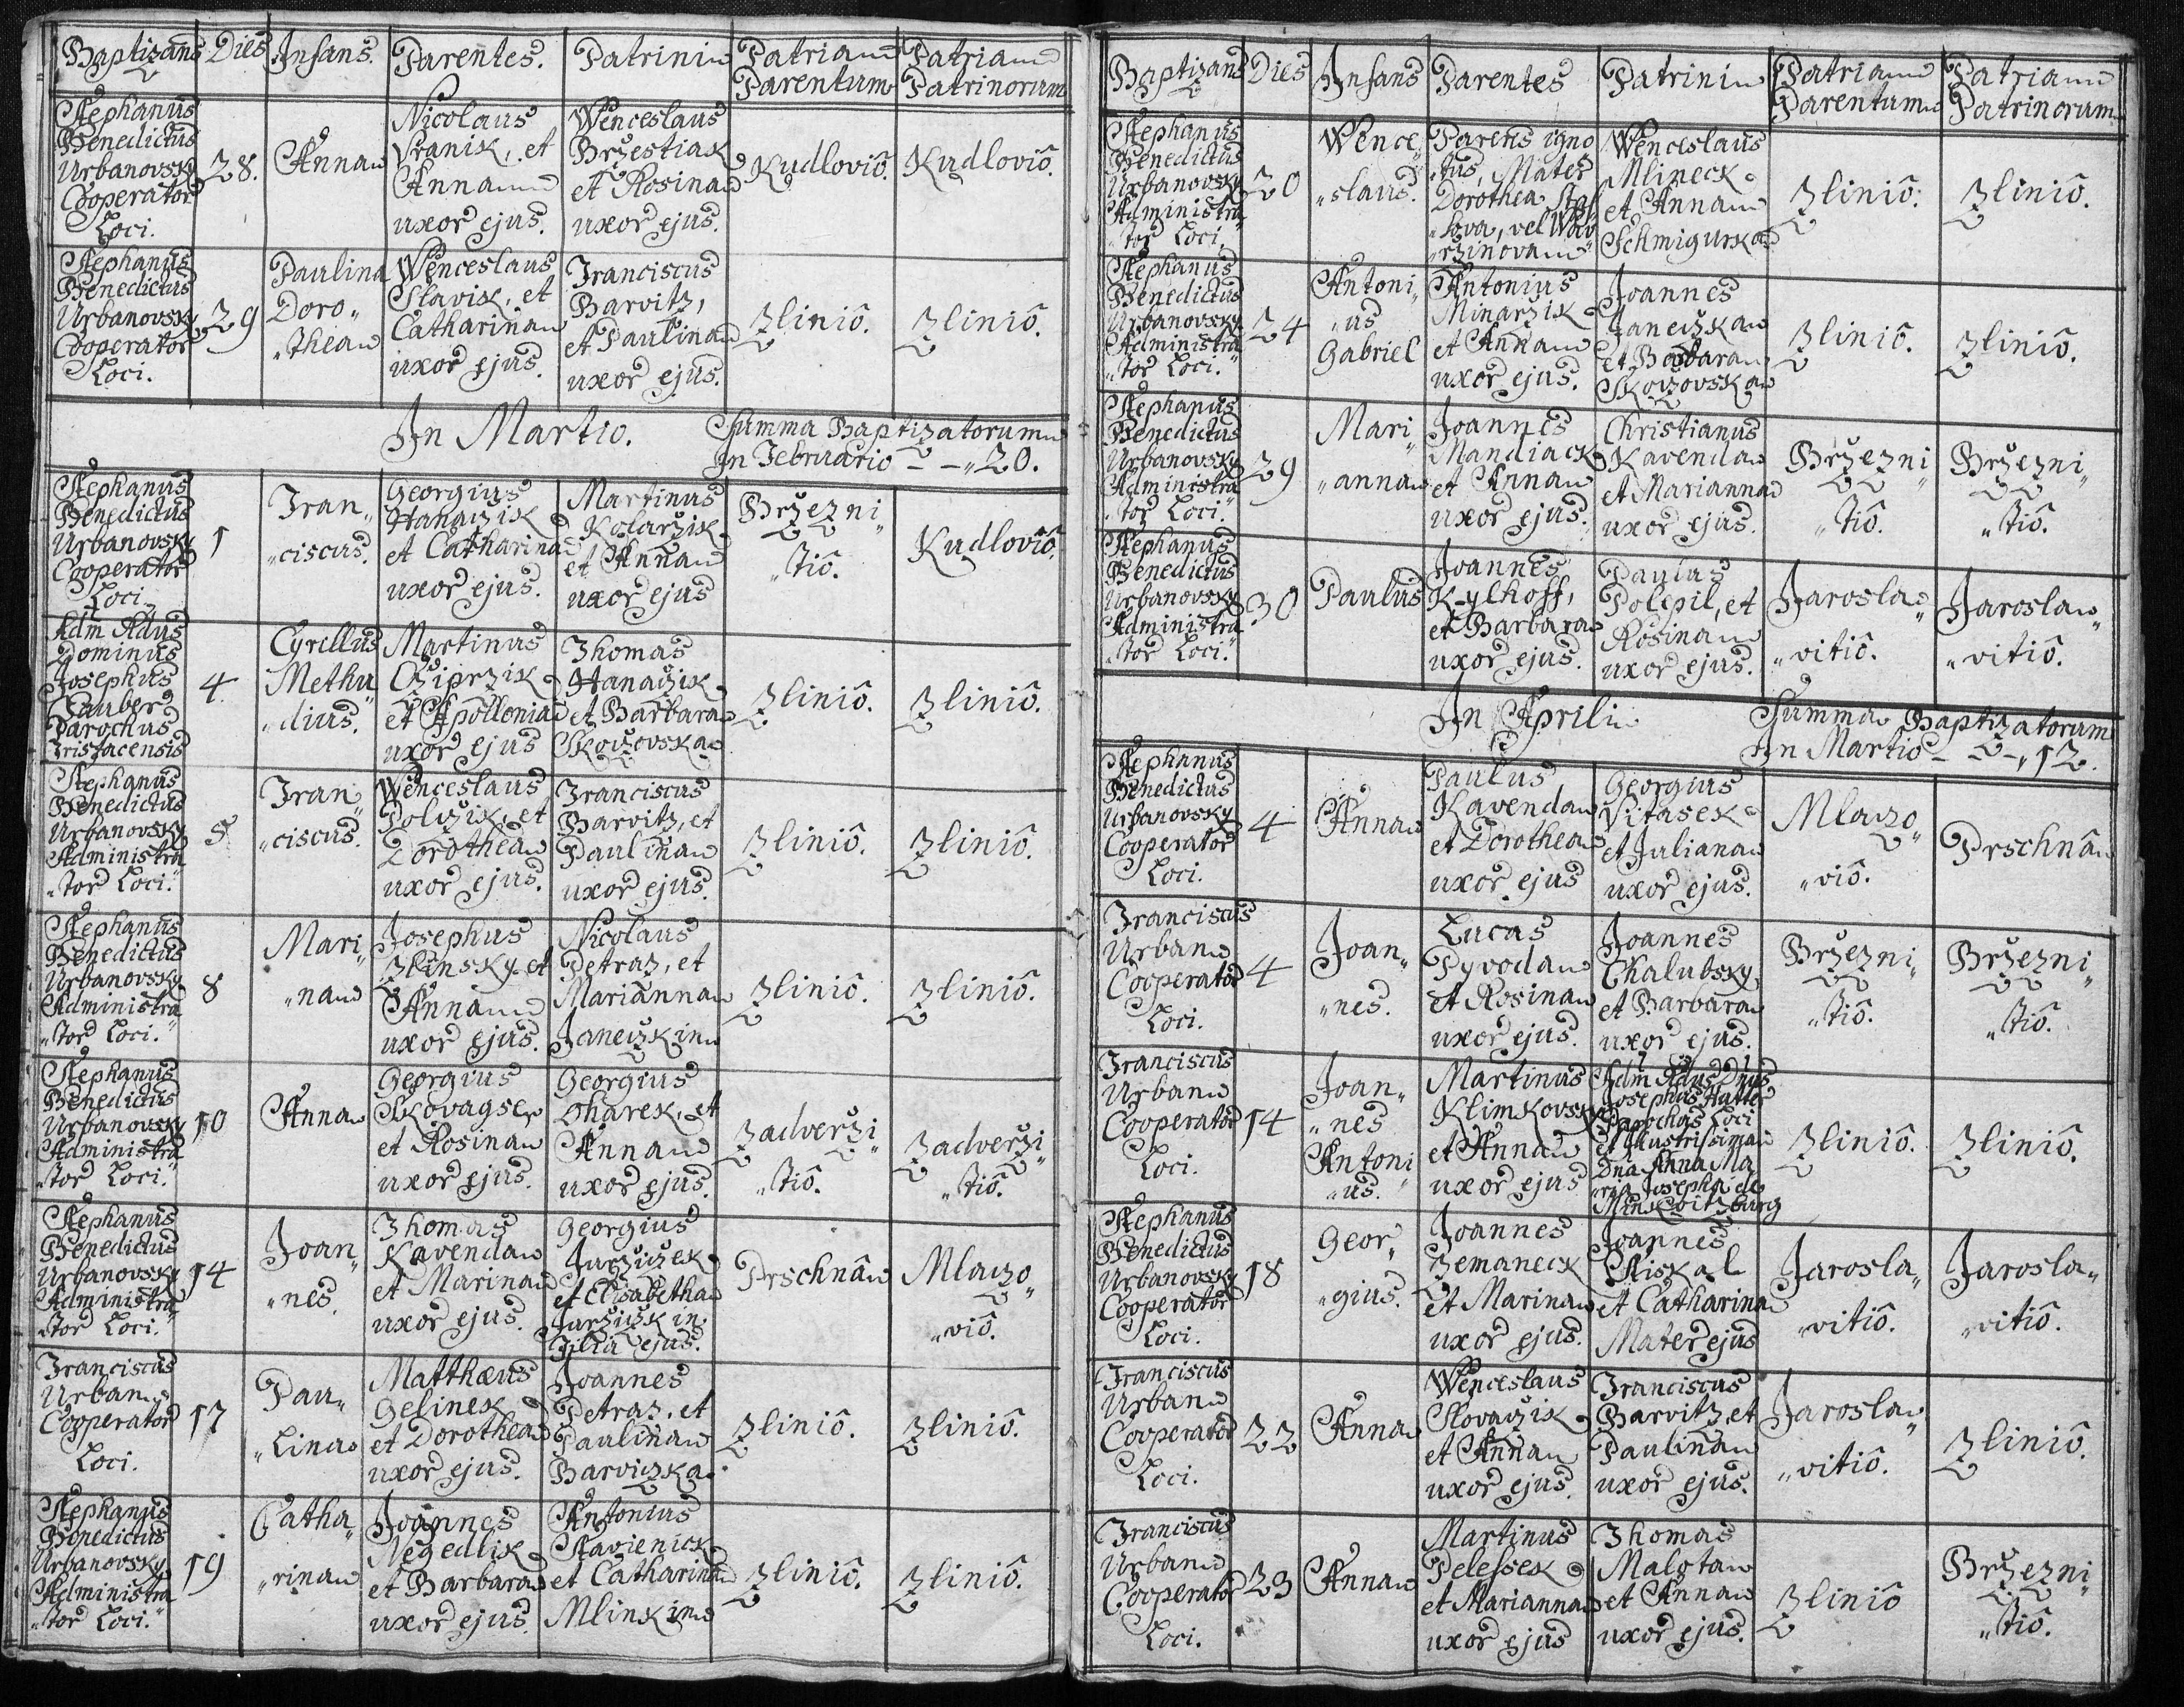 Baptizans Dies Infans. Parentes. Patrini Patria Parentum Patria Patrinorum
Stephanus
Benedictus
Urbanovsky
Cooperator
Loci.
28.
Anna
Nicolaus
Vranik, et
Anna
uxor ejus.
Wenceslaus
Bržestiak
et Rosina
uxor ejus.
Kudloviô.
Kudloviô.
Stephanus
Benedictus
Urbanovsky
Cooperator
Loci.
29
Paulina
Doro„
„thea
Wenceslaus
Slavik, et
Catharina
uxor ejus.
Franciscus
Barvitz,
et Paulina
uxor ejus.
Zliniô.
Zliniô.
In Martio.
Summa Baptizatorum
In Februario - - „ 20.
Stephanus
Benedictus
Urbanovsky
Cooperator
Loci.
1
Fran„
„ciscus.
Georgius
Hanaczik
et Catharina
uxor ejus.
Martinus
Kolarzik
et Anna
uxor ejus
Bržezni„
„tiô.
Kudloviô.
Adm Rdus
Dominus
Josephus
Tauber
Parochus
Tristacensis
4.
Cyrillus
Methu
„dius.
Martinus
Cziprzik
et Apollonia
uxor ejus
Thomas
Hanaczik
et Barbara
Skovzovska
Zliniô.
Zliniô.
Stephanus
Benedictus
Urbanovsky
Administra
„tor Loci.
5
Fran„
„ciscus.
Wenceslaus
Polczik, et
Dorothea
uxor ejus.
Franciscus
Barvitz, et
Paulina
uxor ejus.
Zliniô.
Zliniô.
Stephanus
Benedictus
Urbanovsky
Administra
„tor Loci.
8
Mari„
„na
Josephus
Zlinsky et
Anna
uxor ejus.
Nicolaus
Petraz, et
Marianna
Janeczkin
Zliniô.
Zliniô.
Stephanus
Benedictus
Urbanovsky
Administra
„tor Loci.
10
Anna
Georgius
Skovagse
et Rosina
uxor ejus.
Georgius
Lharek, et
Anna
uxor ejus.
Zadverži„
„tiô.
Zadverži„
„tiô.
Stephanus
Benedictus
Urbanovsky
Administra
„tor Loci.
14
Joan„
„nes.
Thomas
Kavenda
et Marina
uxor ejus.
Georgius
Juržiczek
et Elisabetha
Juržiczkin
Filia ejus.
Prschnâ
Mlaczo„
„viô.
Franciscus
Urban
Cooperator
Loci.
17
Pau„
„lina
Matthæus
Gelinek
et Dorothea
uxor ejus.
Joannes
Petraz, et
Paulina
Barviczka.
Zliniô.
Zliniô.
Stephanus
Benedictus
Urbanovsky
Administra
„tor Loci.
19
Catha„
„rina
Joannes
Negedlik
et Barbara
uxor ejus.
Antonius
Stavienick
et Catharina
Mlinkin
Zliniô.
Zliniô.
Baptizans Dies Infans Parentes Patrini Patria Parentum Patria Patrinorum
Stephanus
Benedictus
Urbanovsky
Administra
„tor Loci.
20
Wence„
„slaus.
Parens igno
„tus, Mater
Dorothea
vel
Wenceslaus
Mlineck
et Anna
Schmigurka
Zliniô.
Zliniô.
Stephanus
Benedictus
Urbanovsky
Administra
„tor Loci.
24
Antoni„
„us
Gabriel
Antonius
Minarzik
et Anna
uxor ejus.
Joannes
Janeczka
et Barbara
Skovzovska
Zliniô.
Zliniô.
Stephanus
Benedictus
Urbanovsky
Administra
„tor Loci.
29
Mari„
„anna
Joannes
Mandiack
et Anna
uxor ejus.
Christianus
Kavenda
et Marianna
uxor ejus.
Bržezni„
„tiô.
Bržezni„
„tiô.
Stephanus
Benedictus
Urbanovsky
Administra
„tor Loci.
30
Paulus
Joannes
Kylhoff,
et Barbara
uxor ejus.
Paulus
Polepil, et
Rosina
uxor ejus.
Jarosla„
„vitiô.
Jarosla„
„vitiô.
In Aprili
Summa Baptizatorum
In Martio - - - „ 12.
Stephanus
Benedictus
Urbanovsky
Cooperator
Loci.
4
Anna
Paulus
Kavenda
et Dorothea
uxor ejus
Georgius
Vitasek
et Juliana
uxor ejus.
Mlaczo„
„viô.
Prschnâ
Franciscus
Urban
Cooperator
Loci.
4
Joan„
„nes.
Lucas
Pyvoda
et Rosina
uxor ejus.
Joannes
Chalubsky
et Barbara
uxor ejus.
Bržezni„
„tiô.
Bržezni„
„tiô.
Franciscus
Urban
Cooperator
Loci.
14
Joan„
„nes
Antoni
„us.
Martinus
Klimkovsky
et Anna
uxor ejus
Adm Rdus Dnus
Josephus Hatter
Parochus Loci
et Illustrissima
Dna Anna Ma
„ria Josepha de
Minkvitzburg
Zliniô.
Zliniô.
Stephanus
Benedictus
Urbanovsky
Cooperator
Loci.
18
Geor„
„gius.
Joannes
Zemaneck
et Marina
uxor ejus.
Joannes
Riskal
et Catharina
Mater ejus
Jarosla„
„vitiô.
Jarosla„
„vitiô.
Franciscus
Urban
Cooperator
Loci.
22
Anna
Wenceslaus
Slovaczik
et Anna
uxor ejus.
Franciscus
Barvitz, et
Paulina
uxor ejus.
Jarosla„
„vitiô.
Zliniô.
Franciscus
Urban
Cooperator
Loci.
23
Anna
Martinus
Pelessek
et Marianna
uxor ejus
Thomas
Malota
et Anna
uxor ejus.
Zliniô
Bržezni„
„tiô.